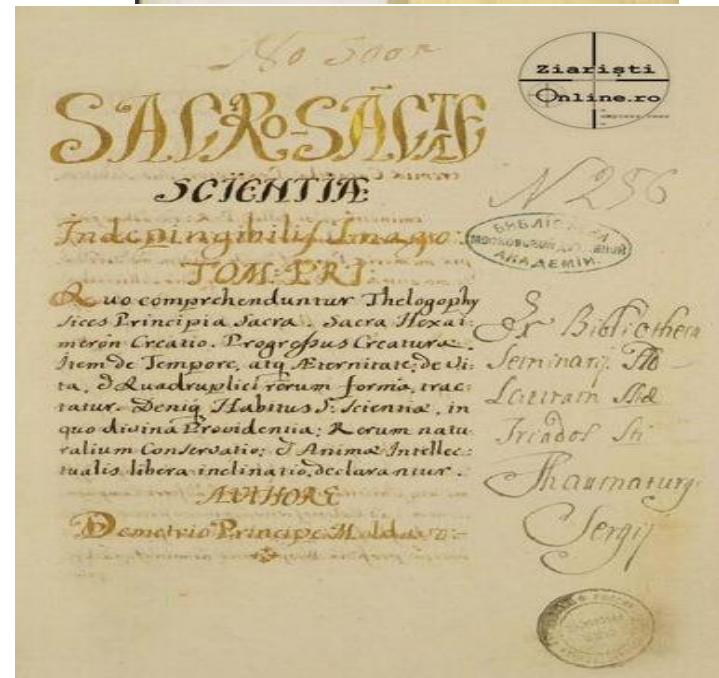 No 500
Ziariști
Online.ro
SACRO-SÃCTÆ
SCIENTIÆ
Indepingibilis Imago:
TOM: PRI:
Quo comprehenduntur Thelogophy
sices Principia Sacra. Sacra Hexai-
meron Creatio. Progressus Creaturæ.
Item de Tempore, atq Æternitate; de Vi-
ta, & Quadruplici rerum forma, trac-
tatur. Deniq Habitus S. Scientiæ, in
quo divina Providentia; Rerum natu
ralium Conservatio; & Animæ Intellec:
tualis libera inclinatio, declarantur.
AUTHORE
Demetrio Principe Moldav
N 256
БИБЛІОТЕКА
МОСКОВСКОЙ ДУХОВНОЙ
АКАДЕМІИ.
Ex Bibliotheca
Seminarij
Lauram
Triados Sti
Thaumaturgi
Sergij